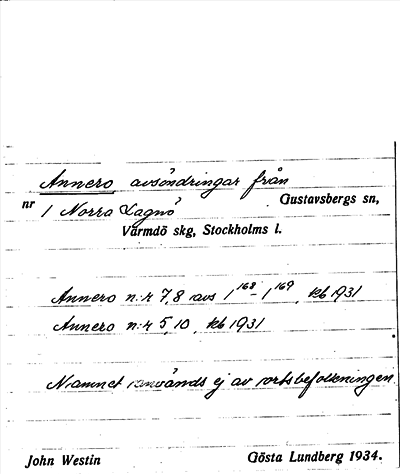 Annero avsöndringar från
nr 1 Norra Lagnö Gustavsbergs sn,
Värmdö skg, Stockholms l.
Annero n:r 7,8 avs 1¹⁶⁸-1¹⁶⁹, kb 1931
Annero n:r 5,10, kb 1931
Namnet används ej av ortsbefolkningen
John Westin Gösta Lundberg 1934.